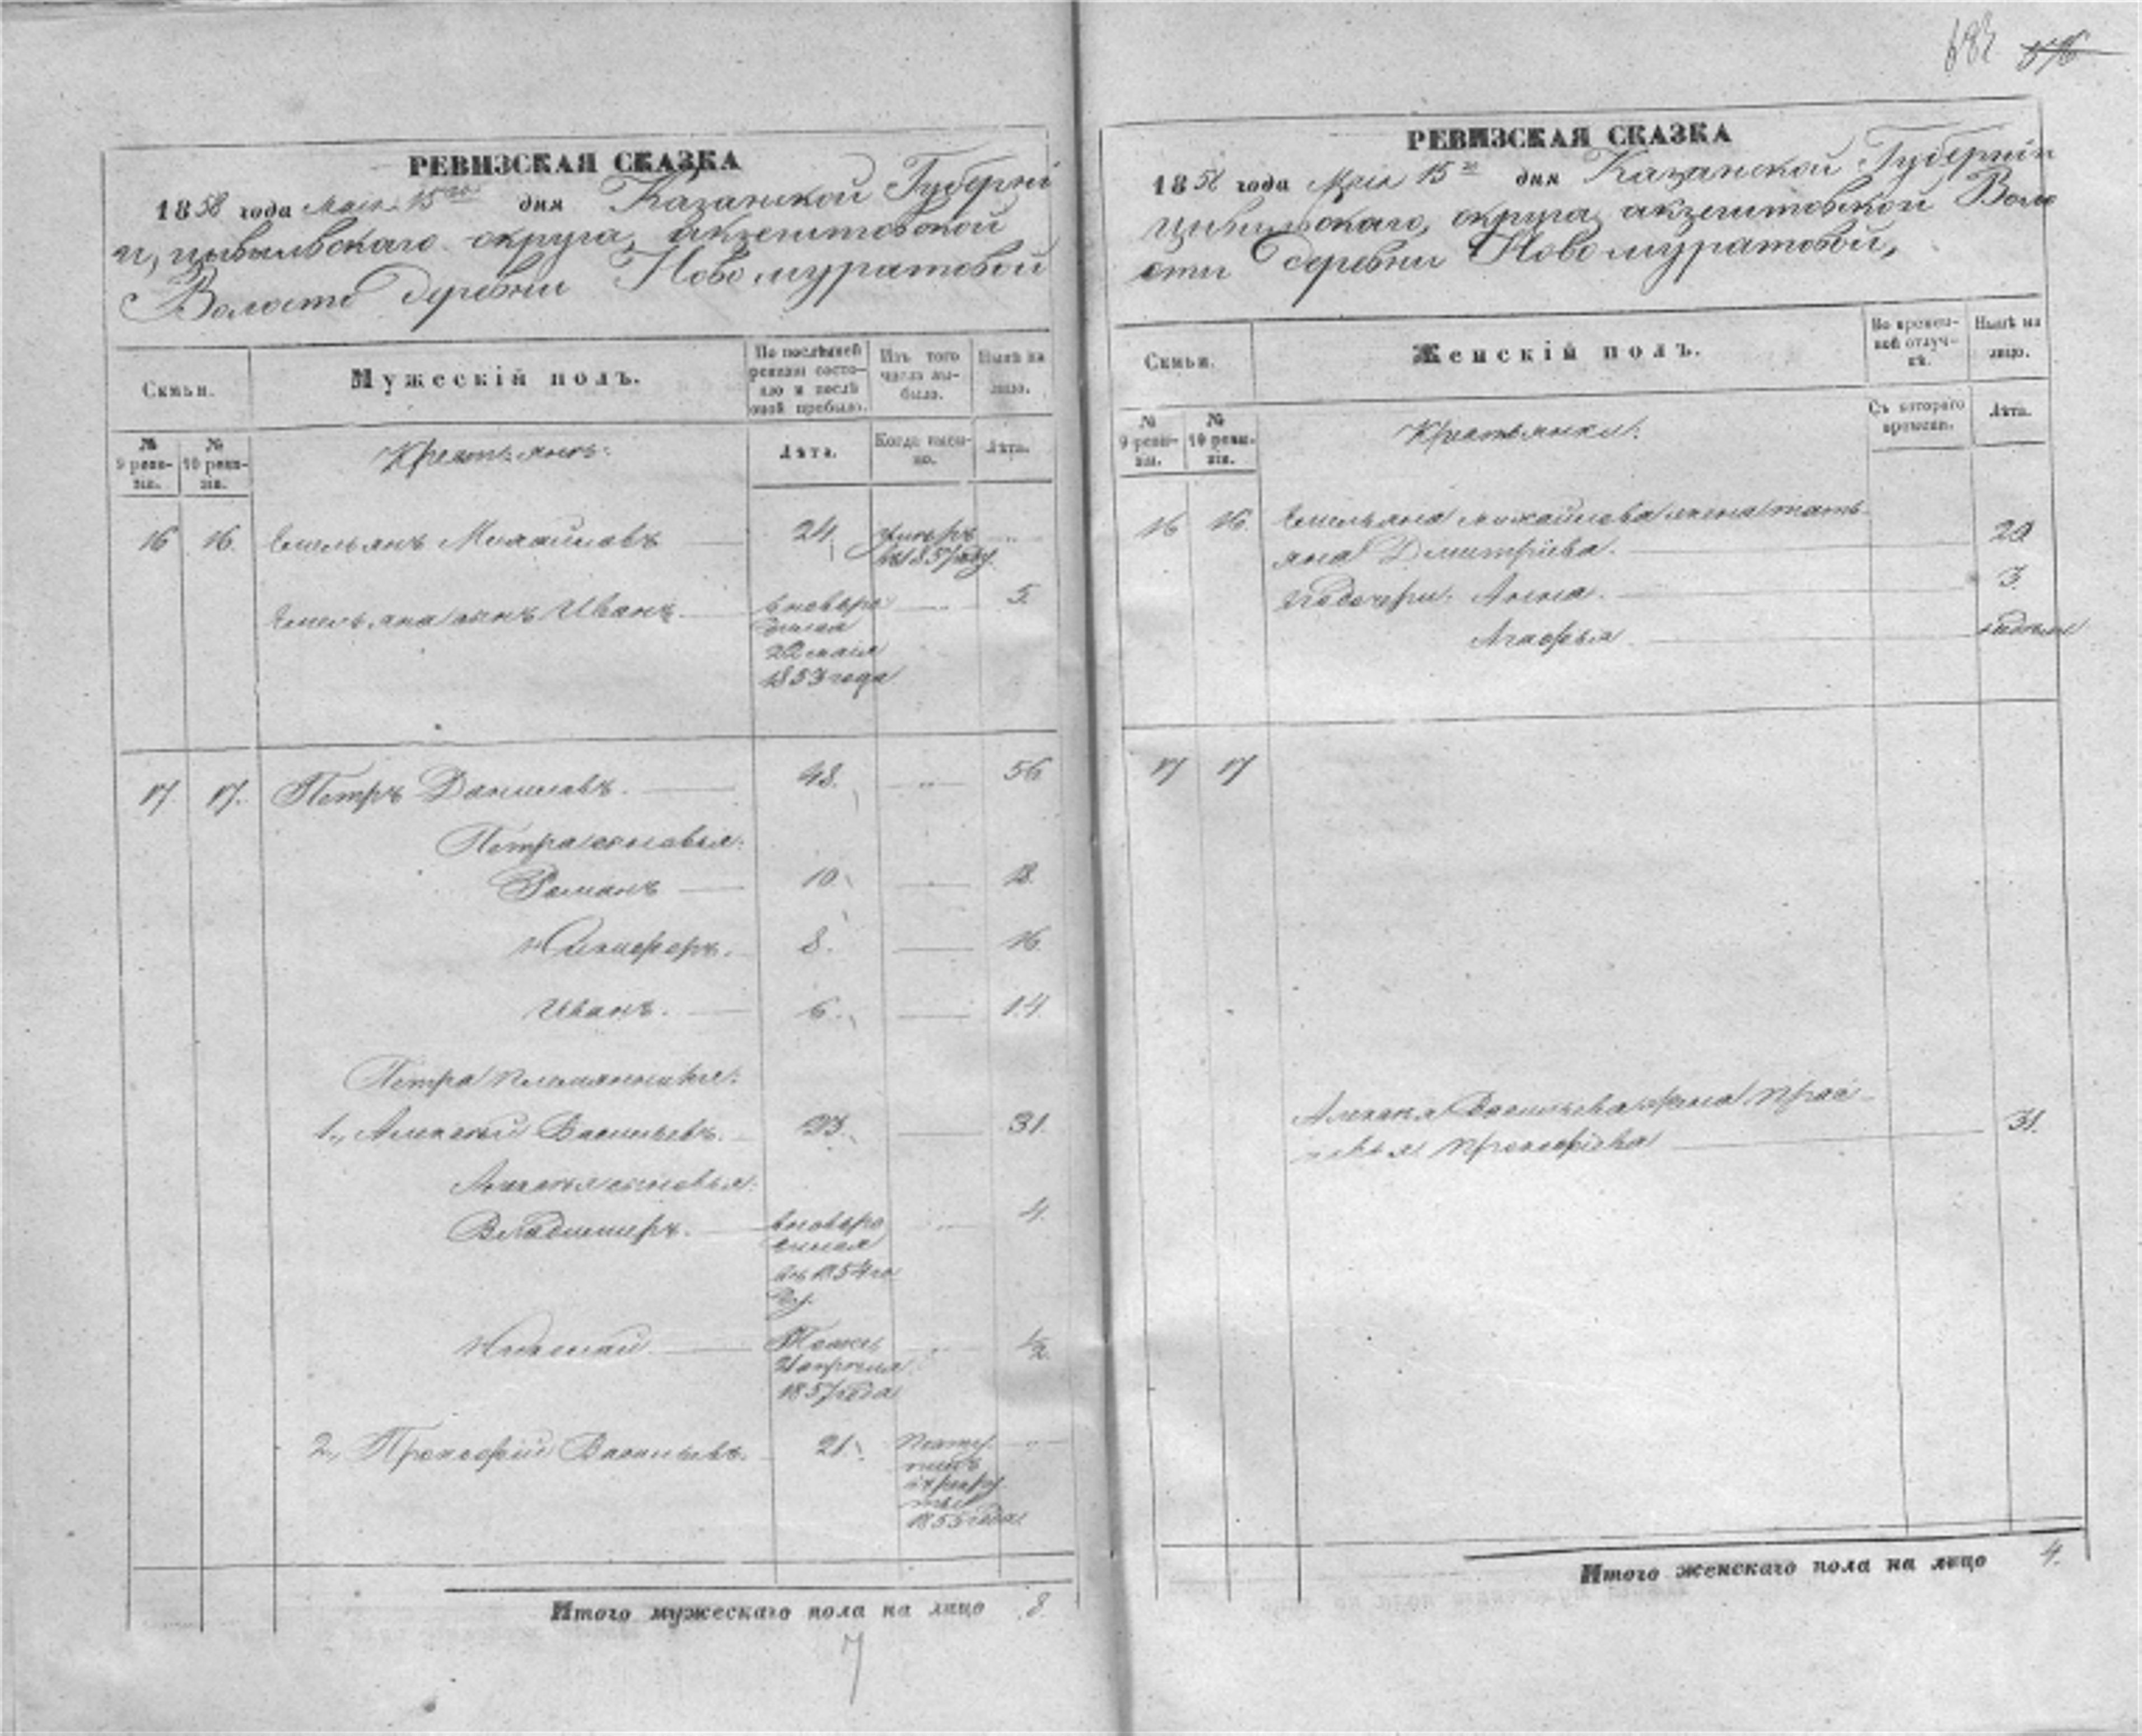 682 676
РЕВИЗСКАЯ СКАЗКА
1858 года Мая 15го дня Казанской Губерні
и, цывильскаго округа, акзегитовской
Волости деревни Новомуратовой
Семьи.
Мужескій полъ.
По послѣдней ревизіи состояло и послѣ оной прибыло.
Изъ того числа выбыло.
Нынѣ на лицо.
№ 9 ревизіи.
№ 10 ревизіи.
Крестьянъ:
Лѣта.
Когда именно.
Лѣта.
16 16. Емельянъ Михайловъ 24 умеръ
въ 1857 году
Емельяна сынъ Иванъ вновьро 5.
жденъ
22 мая
1853 года
17. 17. Петръ Даниловъ. 48. „ 56
Петра сыновья:
Романъ 10. 18.
Никифоръ. 8. 16.
Иванъ. 6. 14.
Петра племянники:
1., Алексѣй Васильевъ. 23. 31.
Алексѣя сыновья:
Владимиръ. вновьро 4.
въ 1854 го
ду.
Николай Тоже ½
апреля
1857 года
2., Прокофій Васильевъ. 21. Посту
пилъ
въ рекру
ты
1855 года
Итого мужескаго пола на лицо 8.
7
РЕВИЗСКАЯ СКАЗКА
1858 года Мая 15го дня Казанской Губерніи
цывильскаго, округа акзегитовской Воло
сти деревни Новомуратовой,
Семьи.
Женскій полъ.
Во временной отлучкѣ.
Нынѣ на лицо.
№ 9 ревизіи.
№ 10 ревизіи.
Крестьянки:
Съ котораго времени.
Лѣта.
16 16. Емельяна михайлова жена тать
яна Дмитріева. 29
Анна. 3
Агафья
17 17
Алексѣя Васильева жена
Прокофіева 31.
Итого женскаго пола на лицо 4.